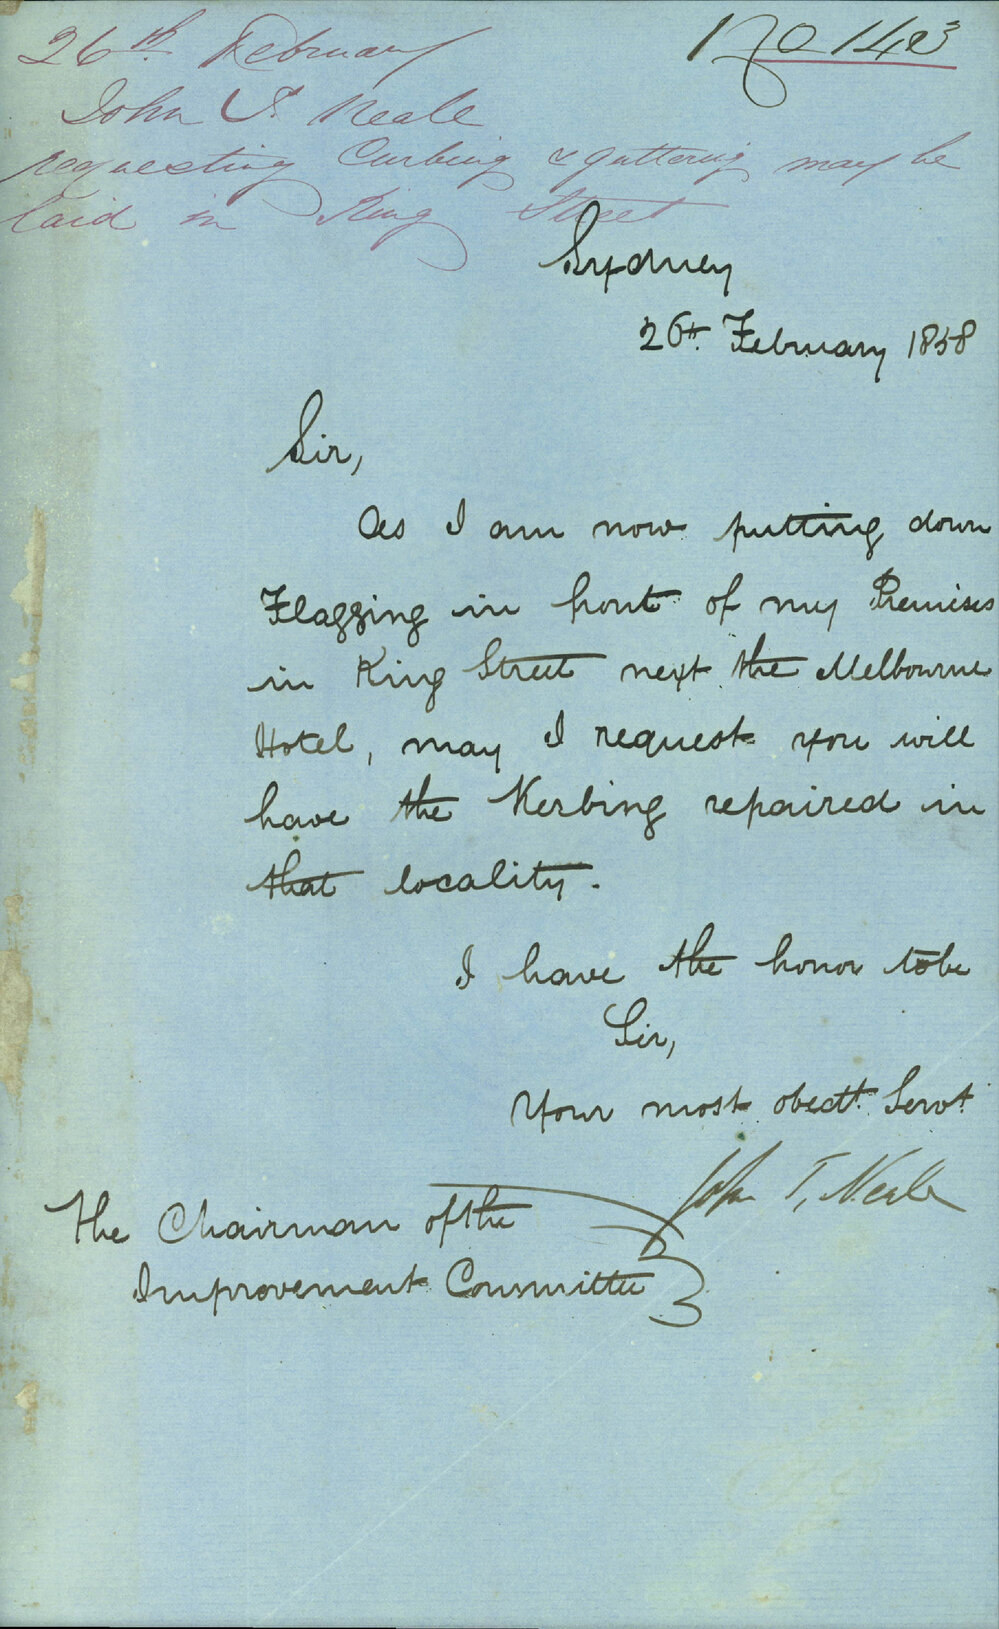 26th February
No 143
John T. Neale
requesting Curbing & guttering may be
laid in King Street
Sydney
26th. February 1858
Sir,
As I am now putting down
Flagging in front of my Premises
in King Street next the Melbourne
Hotel, may I request you will
have the Kerbing repaired in
that locality.
I have the honor to be
Sir,
Your most obedt. Servt.
John T. Neale
The Chairman of the
Improvement Committee